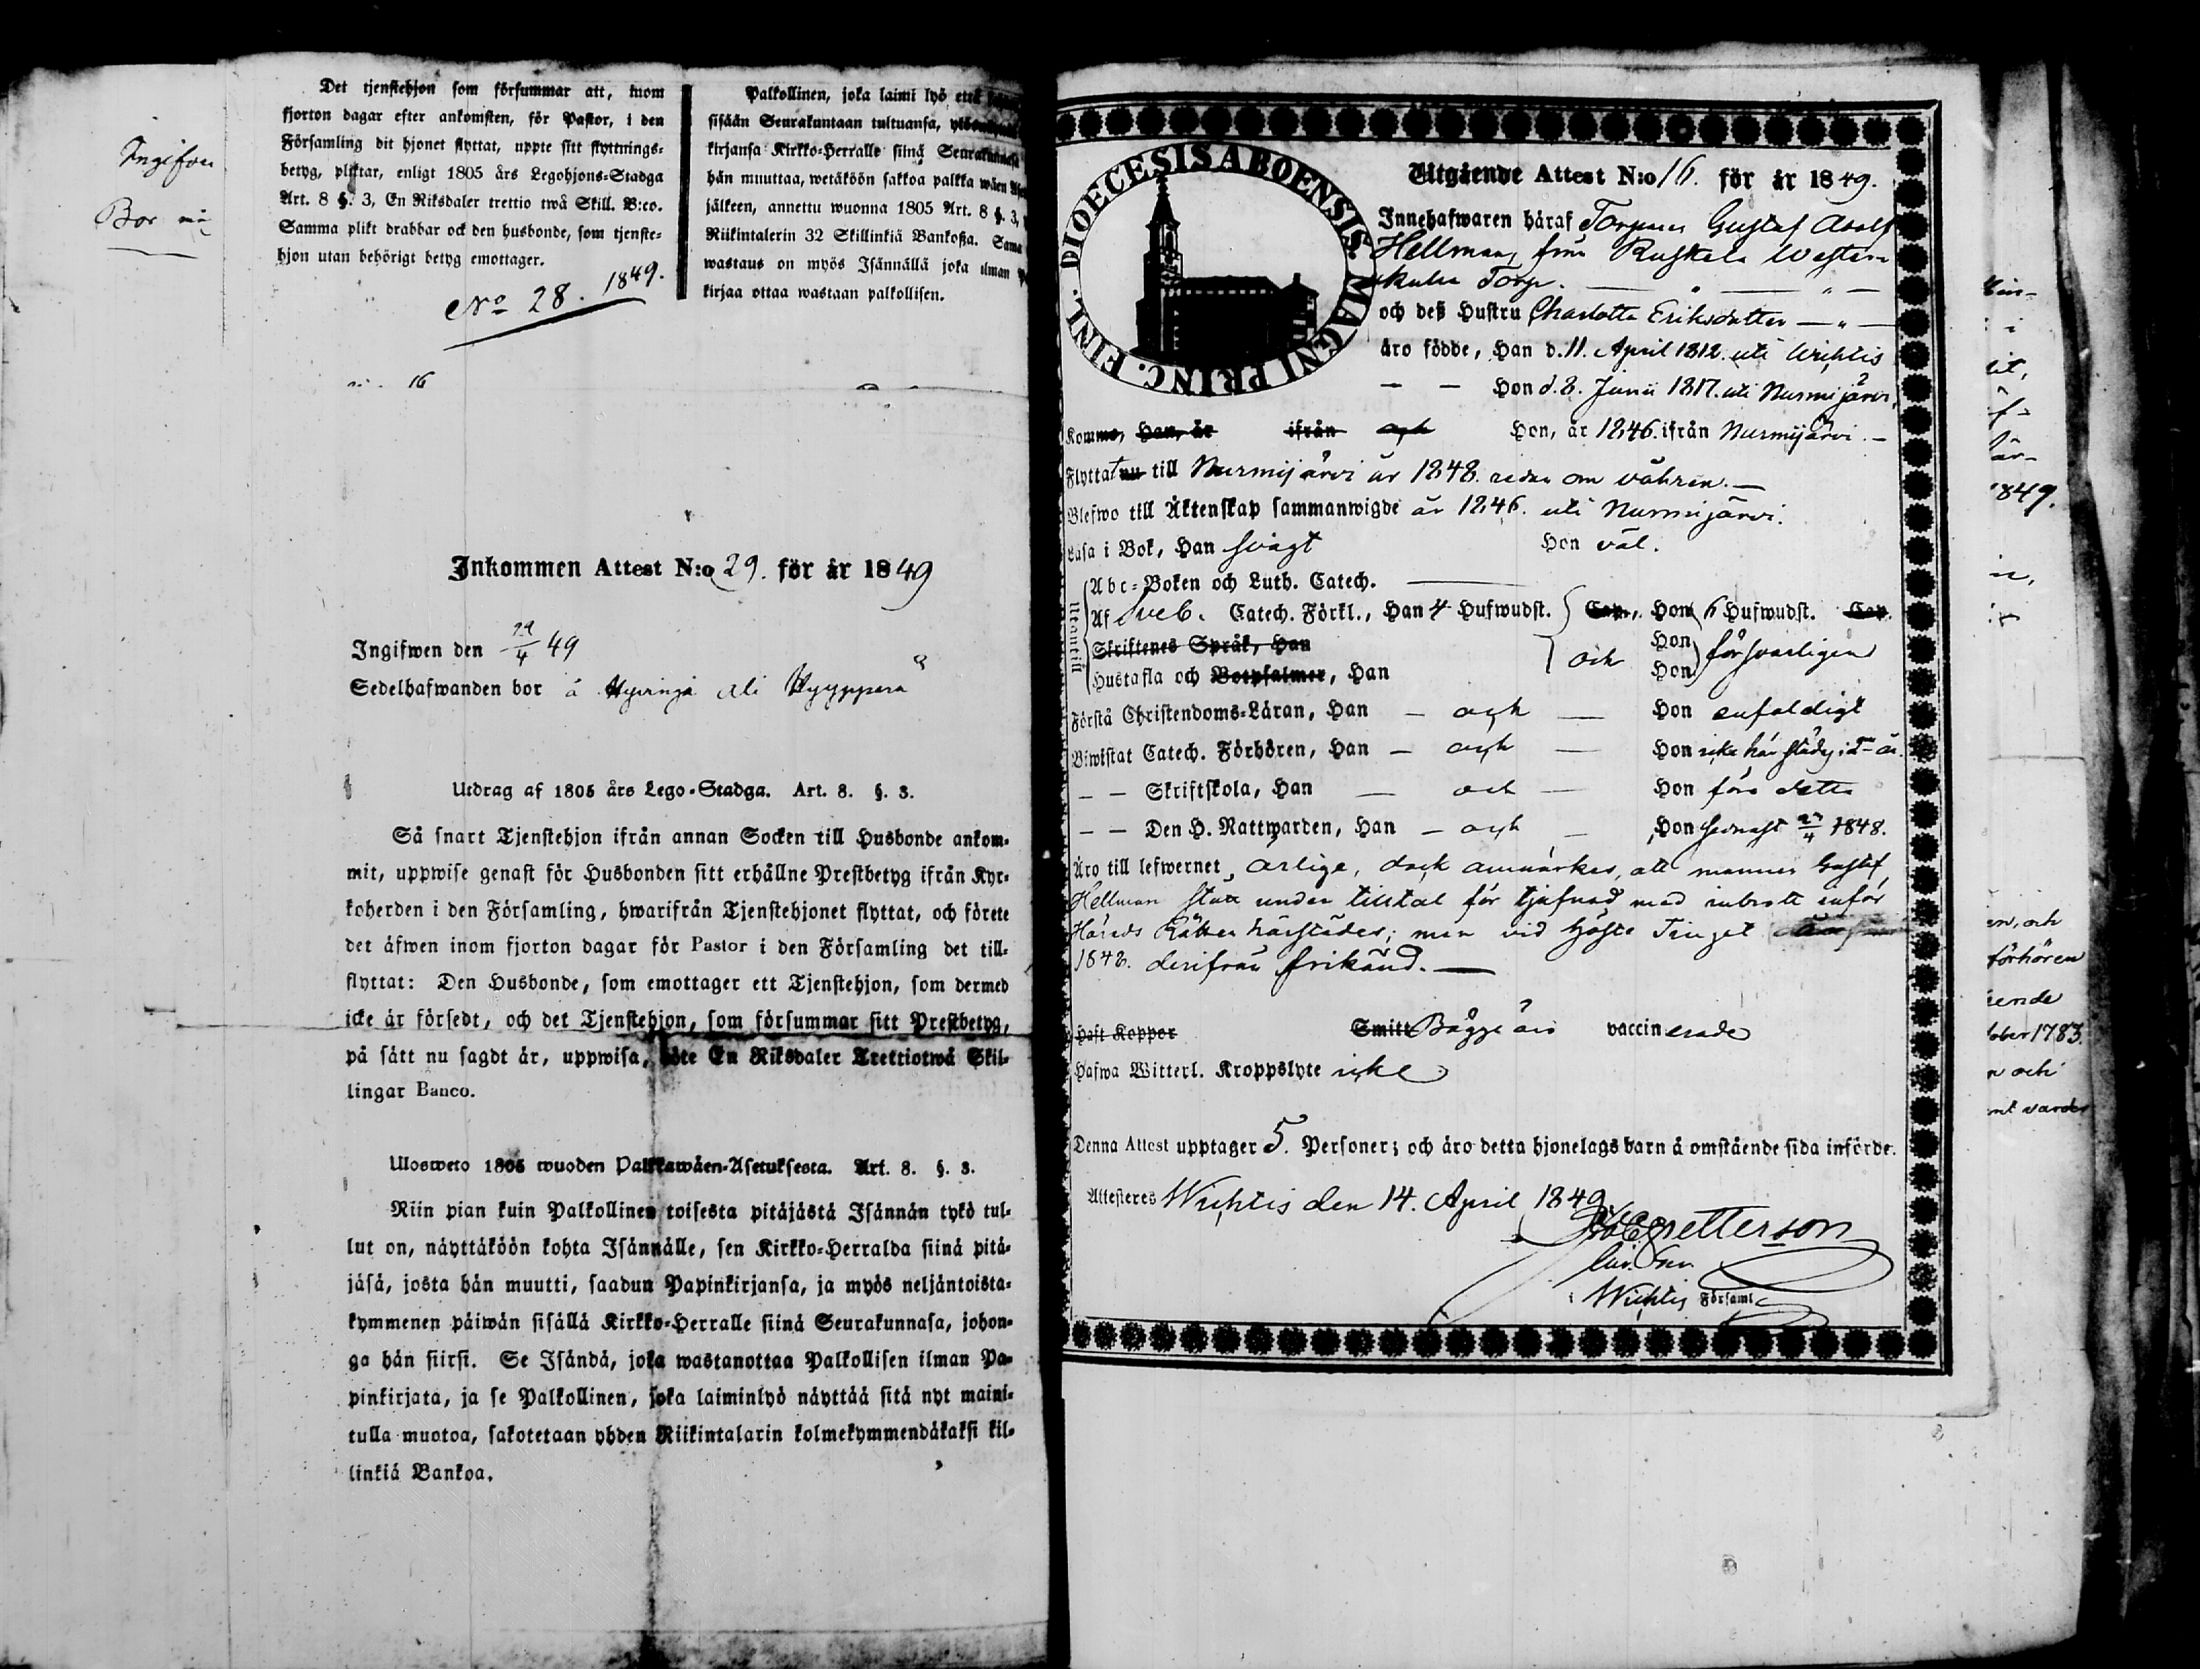 Ingifven
Bor
Det tjenstehjon som försummar att, inom
fjorton dagar efter ankomsten, för Pastor, i den
Församling dit hjonet flyttat, uppte sitt flyttnings-
betyg, pliktar, enligt 1805 års Legohjons-Stadga
Art. 8 §. 3, En Riksdaler trettio twå Skill. B:co.
Samma plikt drabbar ock den husbonde, som tjenste-
hjon utan behörigt betyg emottager.
No 28. 1849.
16
Palkollinen, joka laimi lyö että
sisään Seurakuntaan tultuansa,
kirjansa Kirkko-Herralle siinä Seurakunnasa
hän muuttaa, wetäköön sakkoa palkka wäen
jälkeen, annettu wuonna 1805 Art. 8 §. 3,
Riikintalerin 32 Skillinkiä Bankossa. Sama
wastaus on myös Isännällä joka ilman
kirjaa ottaa wastaan palkollisen.
Inkommen Attest N:o 29. för år 1849
Ingifwen den 29/4 49
Sedelhafwanden bor å Hyvinge Ali
Utdrag af 1805 års Lego-Stadga. Art. 8. §. 3.
Så snart Tjenstehjon ifrån annan Socken till Husbonde ankom-
mit, uppwise genast för Husbonden sitt erhållne Prestbetyg ifrån Kyr-
koherden i den Församling, hwarifrån Tjenstehjonet flyttat, och förete
det äfwen inom fjorton dagar för Pastor i den Församling det till-
flyttat: Den Husbonde, som emottager ett Tjenstehjon, som dermed
icke är försedt, och det Tjenstehjon, som försummar sitt Prestbetyg,
på sätt nu sagdt är, uppwisa, böte En Riksdaler Trettiotwå Skil-
lingar Banco.
Ulosweto 1805 wuoden Palkkawäen-Asetuksesta. Art. 8. §. 3.
Niin pian kuin Palkollinen toisesta pitäjästä Isännän tykö tul-
lut on, näyttäköön kohta Isännälle, sen Kirkko-Herralda siinä pitä-
jäsä, josta hän muutti, saadun Papinkirjansa, ja myös neljäntoista-
kymmenen päiwän sisällä Kirkko-Herralle siinä Seurakunnasa, johon-
ga hän siirsi. Se Isändä, joka wastanottaa Palkollisen ilman Pa-
pinkirjata, ja se Palkollinen, joka laiminlyö näyttää sitä nyt maini-
tulla muotoa, sakotetaan yhden Riikintalarin kolmekymmendäkaksi kil-
linkiä Bankoa.
DIOECESIS ABOENSIS MAGNI PRINC. FINL.
Utgående Attest N:o 16. för år 1849.
Innehafwaren häraf Torparen Gustaf Adolf
Hellman, från Ruskela Western
kulla Torp.
och deß Hustru Charlotta Eriksdotter
äro födde, Han d. 11. April 1812. uti Wichtis
Hon d. 8. Junii 1817. uti Nurmijärvi,
Komme, Han, är ifrån och Hon, år 1846. ifrån Nurmijärvi.
Flyttat nu till Nurmijärvi år 1848. redan om våhren.
Blefwo till Äktenskap sammanwigde år 1846. uti Nurmijärvi.
Läsa i Bok, Han svagt Hon väl.
Utantill
Abc-Boken och Luth. Catech.
Af Sveb. Catech. Förkl., Han 4 Hufwudst. Cap., Hon 6 Hufwudst. Cap.
Skriftenes Språk, Han Hon
Hustafla och Botpsalmer, Han och Hon försvarligen
Förstå Christendoms-Läran, Han och Hon enfaldigt
Biwistat Catech. Förhören, Han och Hon icke här
Skriftskola, Han och Hon före detta
Den H. Nattwarden, Han och Hon sednast 1848.
Äro till lefwernet ärlige, dock anmärkes, att mannen Gustaf
Hellman stått under tilltal för tjufnad med inbrott inför
Härads Rätten härstädes; men vid Höste Tinget
1848. derifrån frikänd.
Haft Koppor Smitt Bägge äro vaccinerade
Hafwa Witterl. Kroppslyte icke
Denna Attest upptager 5. Personer; och äro detta hjonelags barn å omstående sida införde.
Attesteres Wichtis den 14. April 1849.
Petterson
i Wichtis Församl
1849.
en, och
förhören
ober 1783.
och